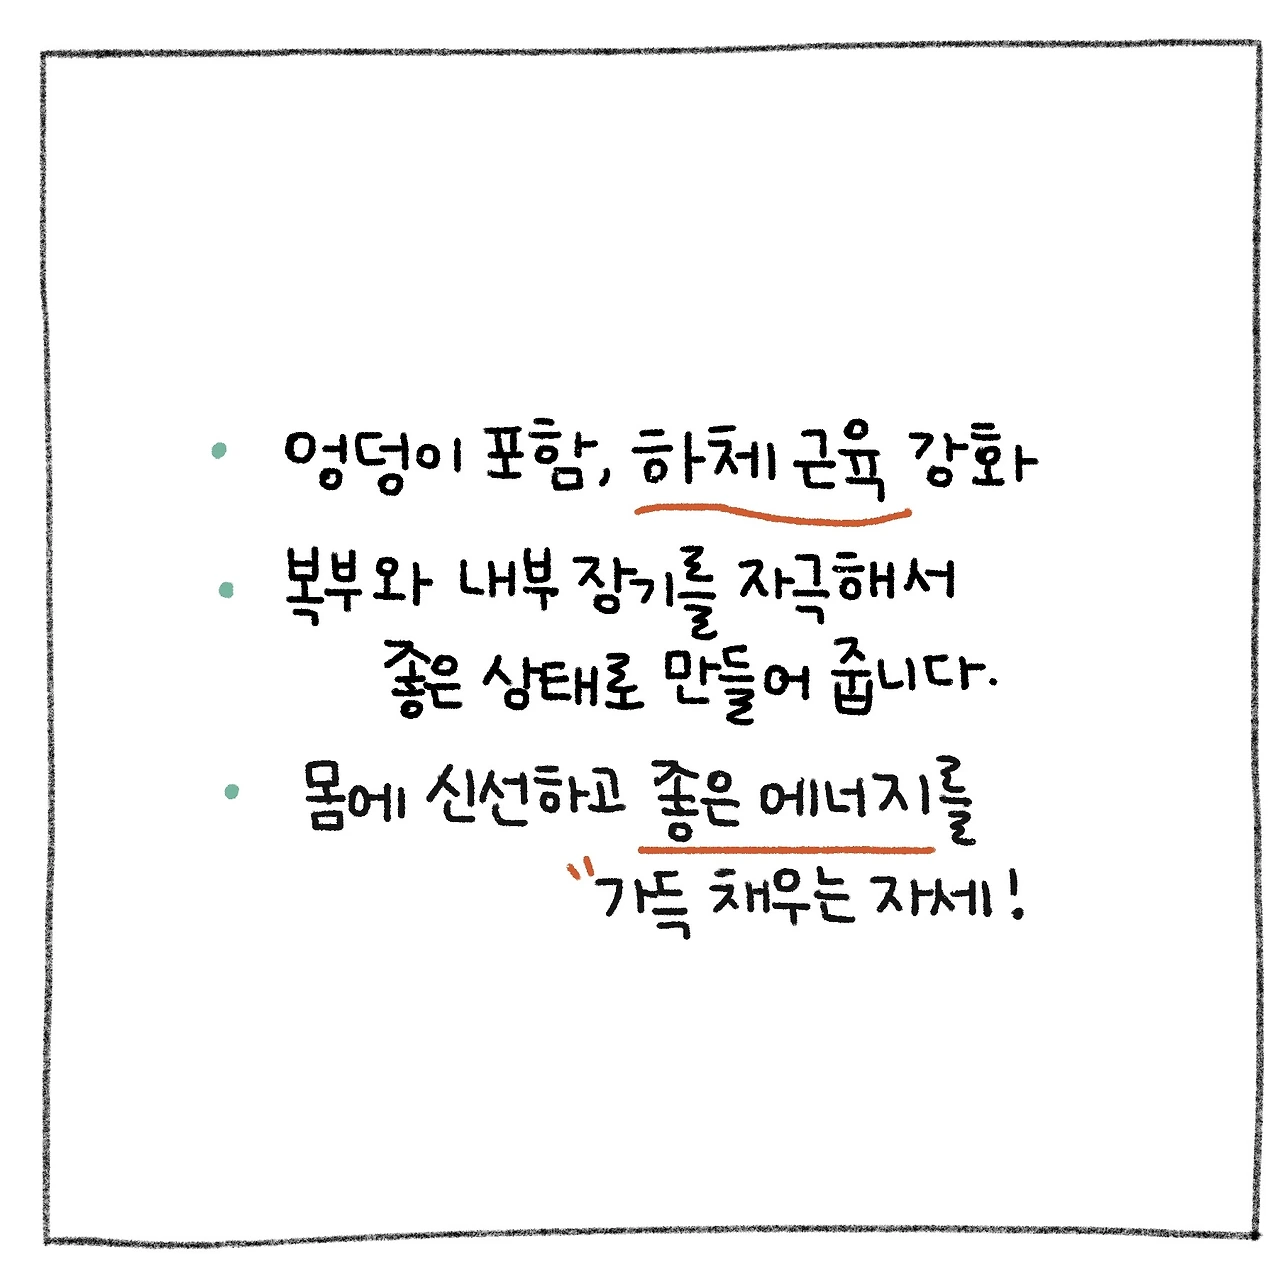 • 엉덩이 포함, 하체 근육 강화
• 복부와 내부 장기를 자극해서
좋은 상태로 만들어 줍니다.
• 몸에 신선하고 좋은 에너지를
가득 채우는 자세!